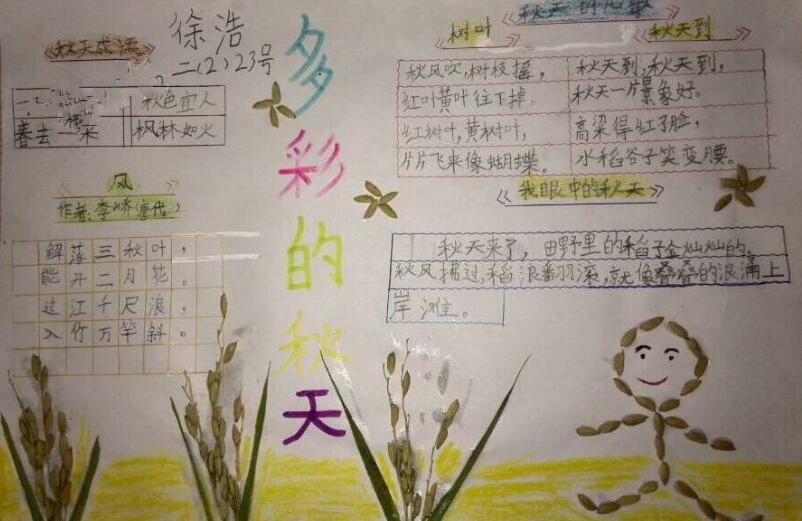 秋天成语
徐浩
二(2)23号
秋色宜人
春去 来
枫林如火
风
作者:李峤(唐代)
解落三秋叶,
能开二月花。
过江千尺浪,
入竹万竿斜。
多彩的秋天
秋天的
树叶
秋风吹,树枝摇,
红叶黄叶往下掉。
红树叶,黄树叶,
片片飞来像蝴蝶。
秋天到
秋天到,秋天到,
秋天一片景象好。
高梁得红了脸,
水稻谷子笑变腰。
我眼中的秋天
秋天来了,田野里的稻子金灿灿的,
秋风拂过,稻浪翻滚,就像叠叠的浪涌上
岸滩。